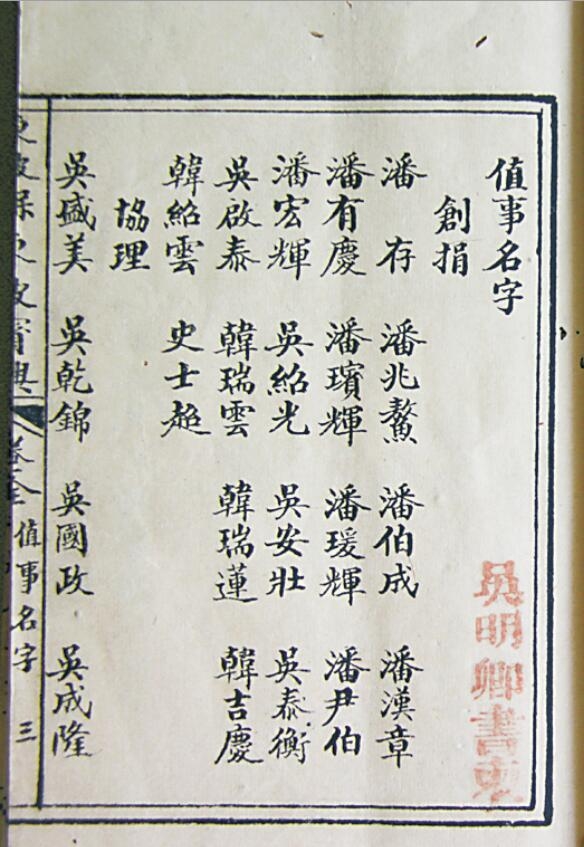 值事名字
創捐
潘存 潘兆鰲 潘伯成 潘漢章
潘有慶 潘璸輝 潘瑗輝 潘尹伯
潘宏輝 吳紹光 吳安壯 吳泰衡
吳啟泰 韓瑞雲 韓瑞蓮 韓吉慶
韓紹雲 史士超
協理
吳盛美 吳乾錦 吳國政 吳成隆
值事名字 三
吳明卿書柬